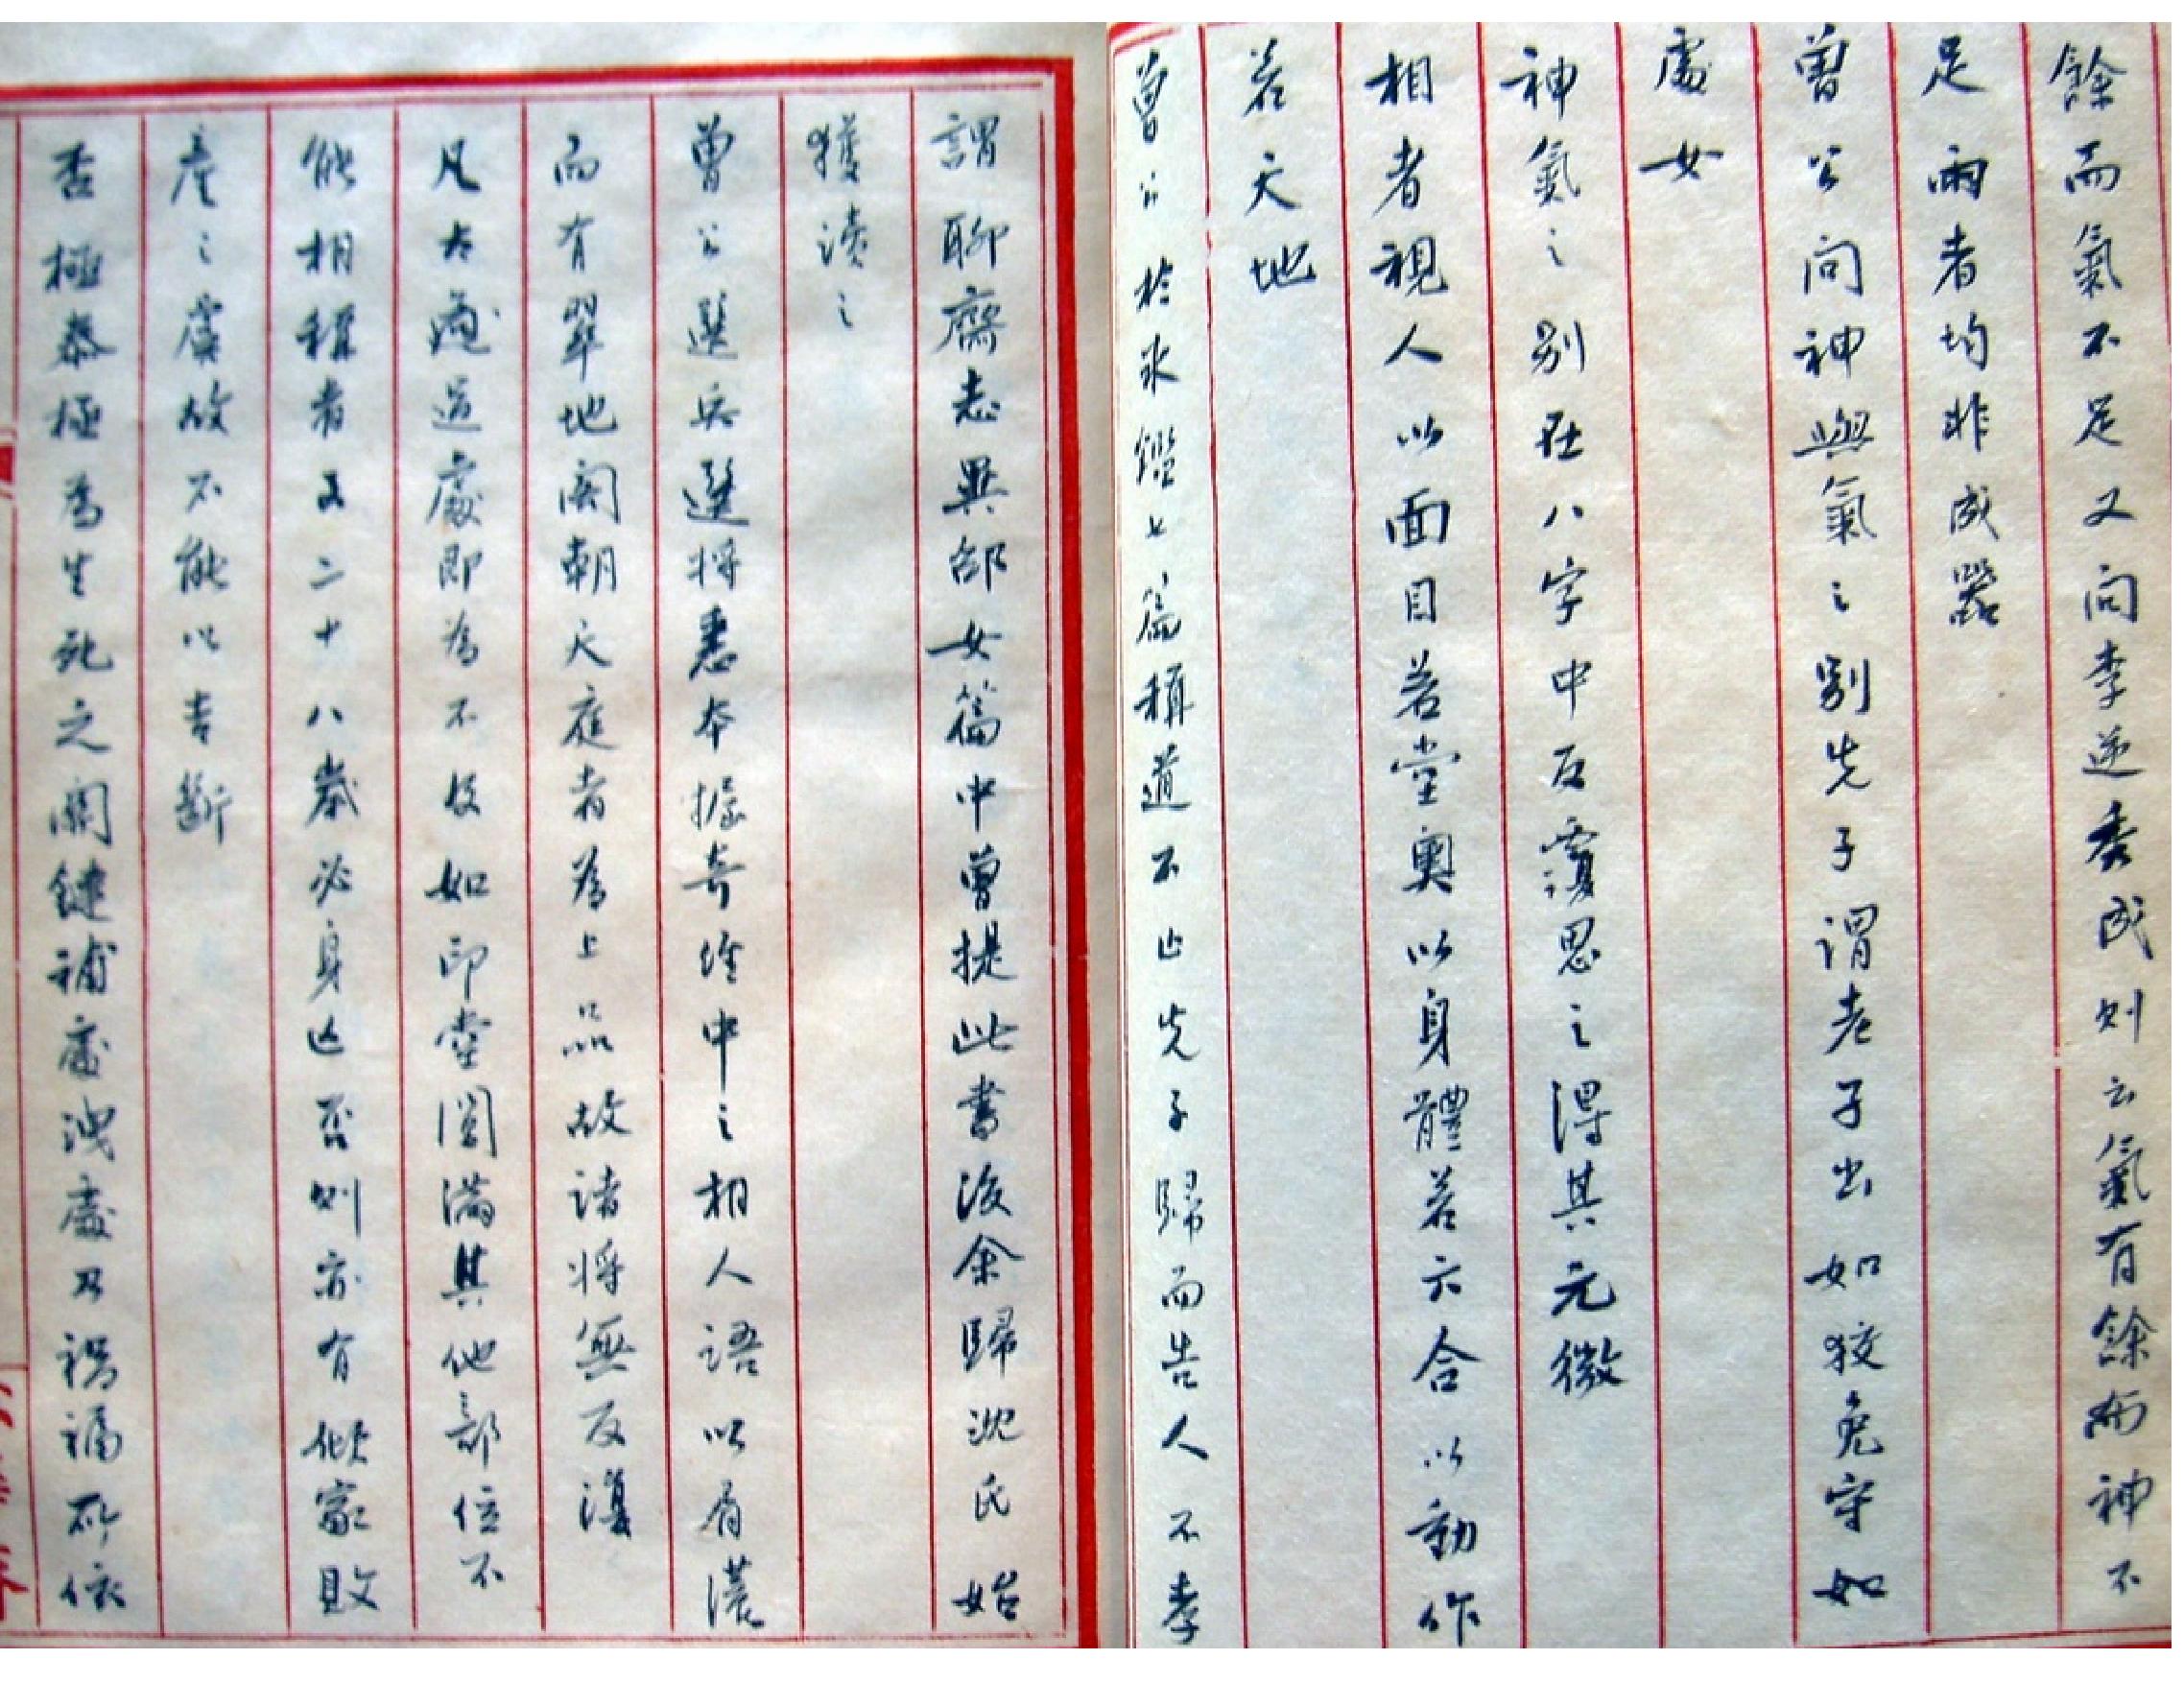 餘而氣不足又向李逆秀成則云氣有餘而神不
足兩者均非成器
曾公问神與氣之别先子谓老子出如狡兔守如
處女
神氣之别在八字中反覆思之得其元微
相者視人以面目若堂奧以身體若六合以動作
若天地
曾公於冰鑑七篇稱道不止先子歸而告人不孝
謂聊齋志異邵女篇中曾提此書後余歸沈氏始
獲读之
曾公選兵選将悉本握奇經中之相人語以眉濃
而有翠地阁朝天庭者為上品故诸将無反復
凡太過逊處即為不及如印堂圆滿其他部位不
能相稱者至二十八歲必身亡否則亦有傾家敗
產之虞故不能以吉斷
否極泰極為生死之關鍵補處洩處乃禍福所依